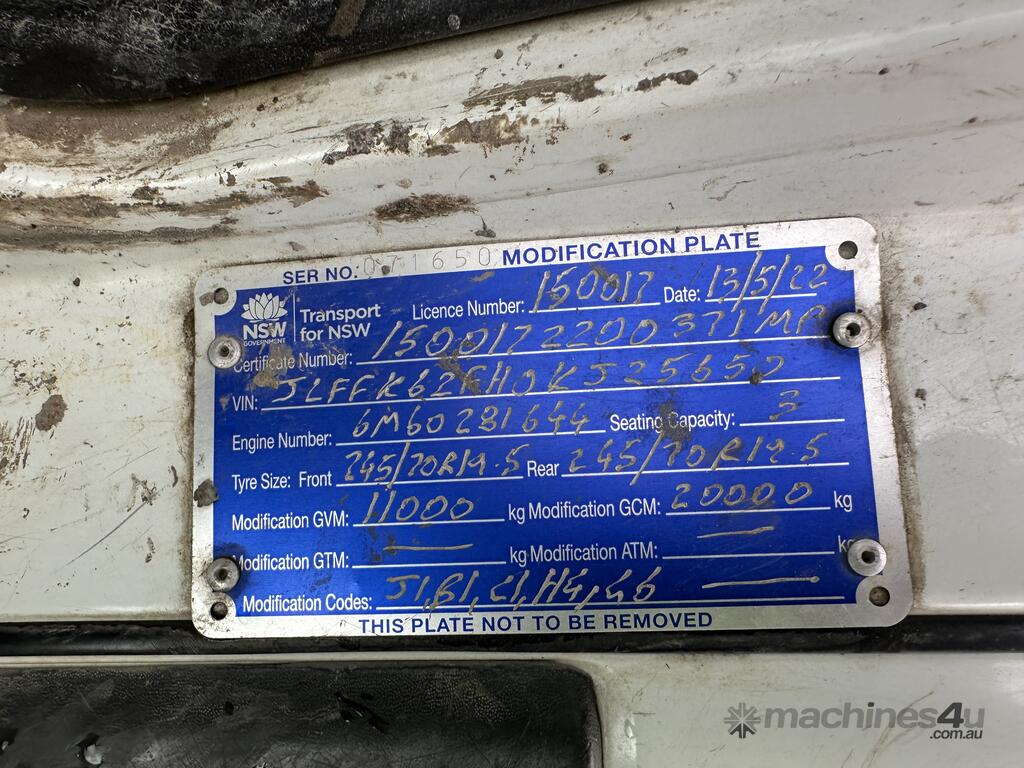 SER NO. 071650 MODIFICATION PLATE
NSW GOVERNMENT Transport for NSW
Licence Number: 150017 Date: 13/5/22
Certificate Number: 1500172200371MP
VIN: JLFFK62FH0KJ25650
Engine Number: 6M60281644 Seating Capacity: 3
Tyre Size: Front 245/70R19.5 Rear 245/70R19.5
Modification GVM: 11000 kg Modification GCM: 20000 kg
Modification GTM: — kg Modification ATM: — kg
Modification Codes: J1, B1, C1, H4, G6 —
THIS PLATE NOT TO BE REMOVED
machines4u
.com.au